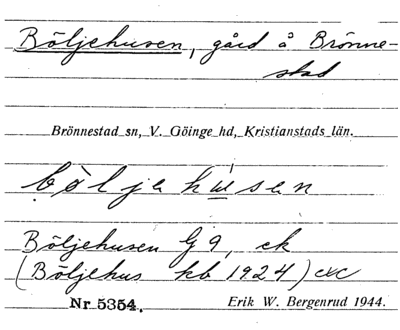 Böljehusen, gård å Brönne-
stad
Brönnestad sn, V. Göinge hd, Kristianstads län.
Böljehusen G 9, ek
(Böljehus kb 1924) exc
Nr 5354. Erik W. Bergenrud 1944.